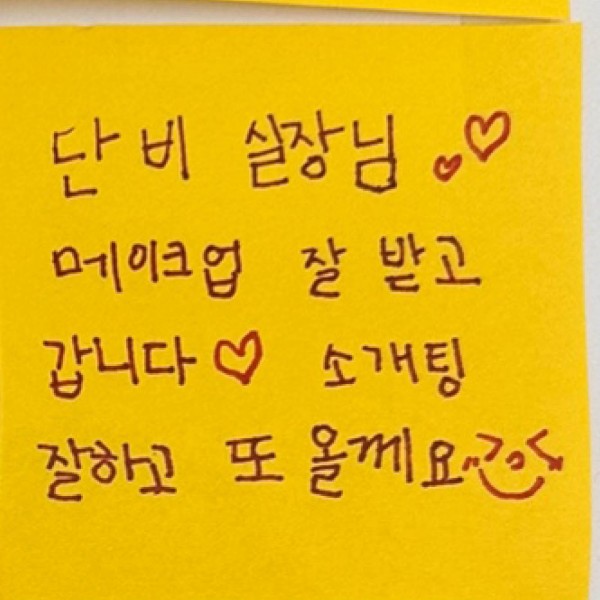 단비 실장님
메이크업 잘 받고
갑니다♡ 소개팅
잘하고 또 올께요